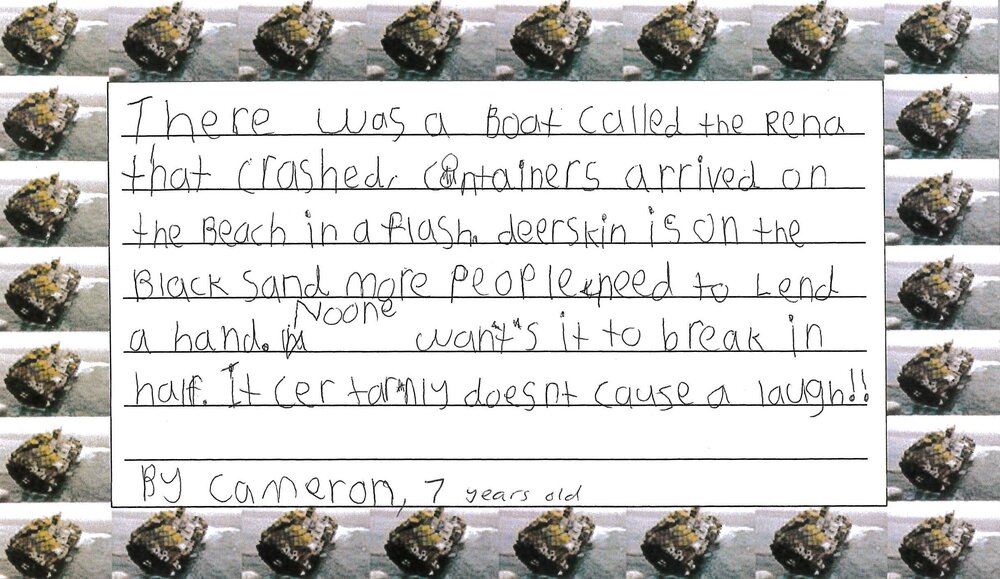 There was a Boat called the Rena
that crashed. Containers arrived on
the Beach in a flash. deerskin is on the
Black sand more people need to Lend
a hand. Noone want's it to break in
half. It certarnly doesnt cause a laugh!!
By Cameron, 7 years old